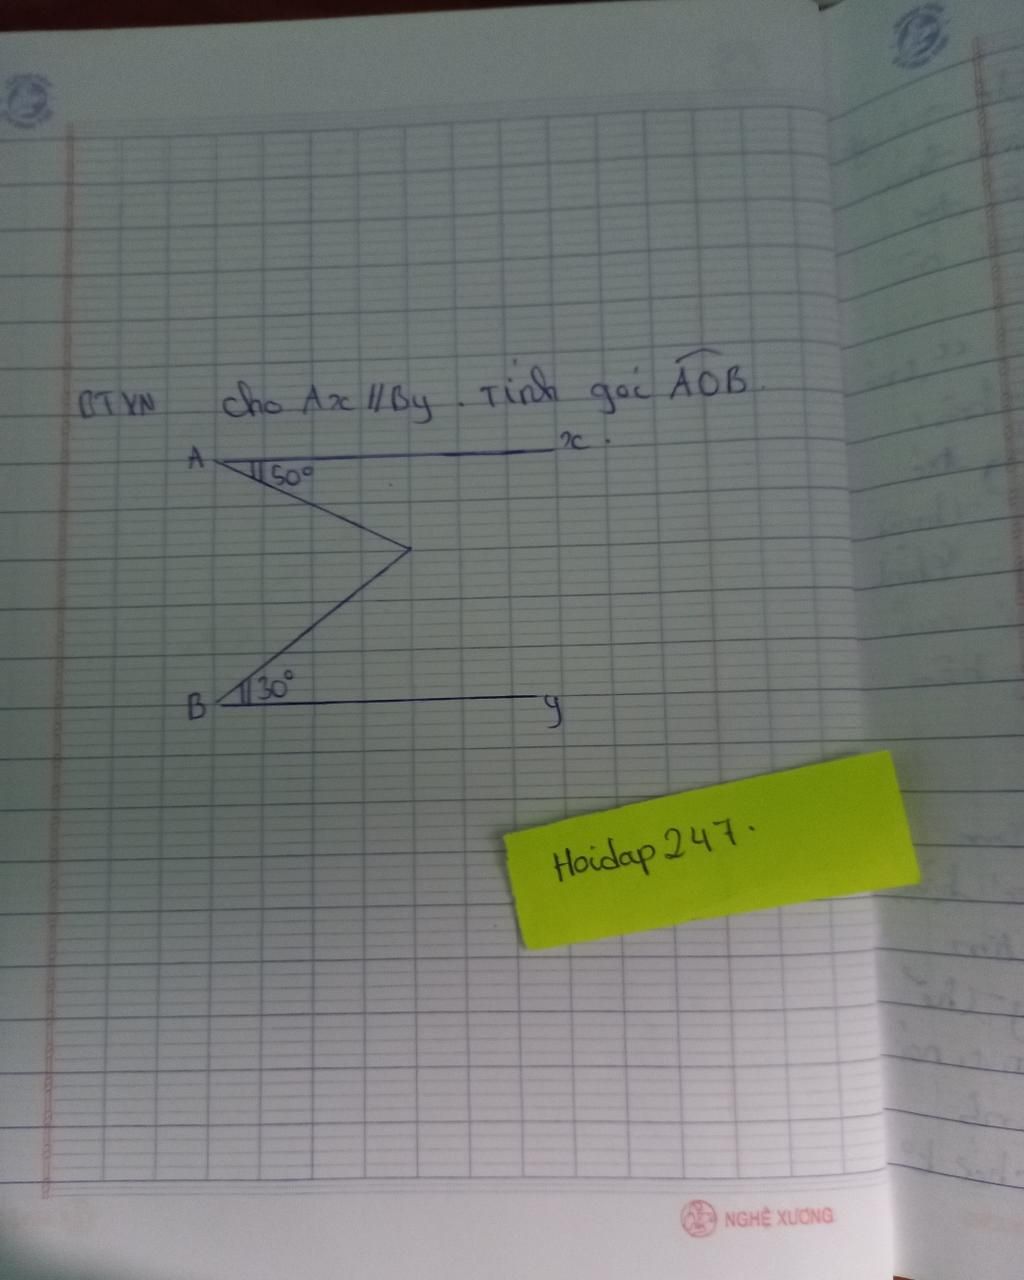 BTVN cho Ax // By . Tính góc AOB
x .
A
50°
30°
B
y
Hoidap 247.
NGHÊ XƯƠNG